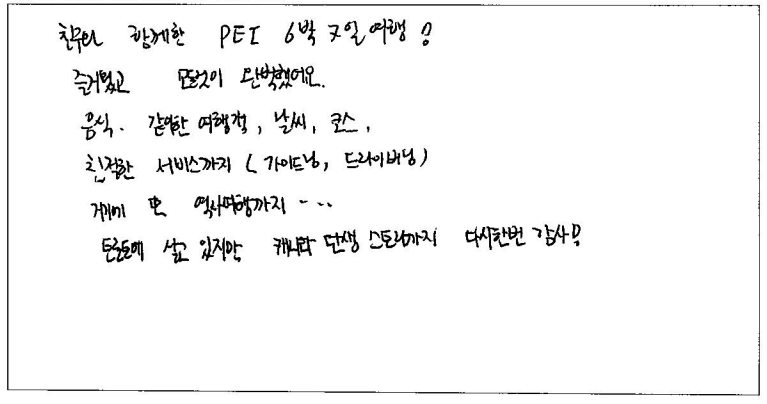 친구와 함께한 PEI 6박 7일 여행!
즐거웠고 모든것이 완벽했어요.
음식. 같이한 여행객, 날씨, 코스,
친절한 서비스까지 (가이드님, 드라이버님)
거기에 또 역사여행까지 ...
토론토에 살고 있지만 캐나다 탄생 스토리까지 다시한번 감사!